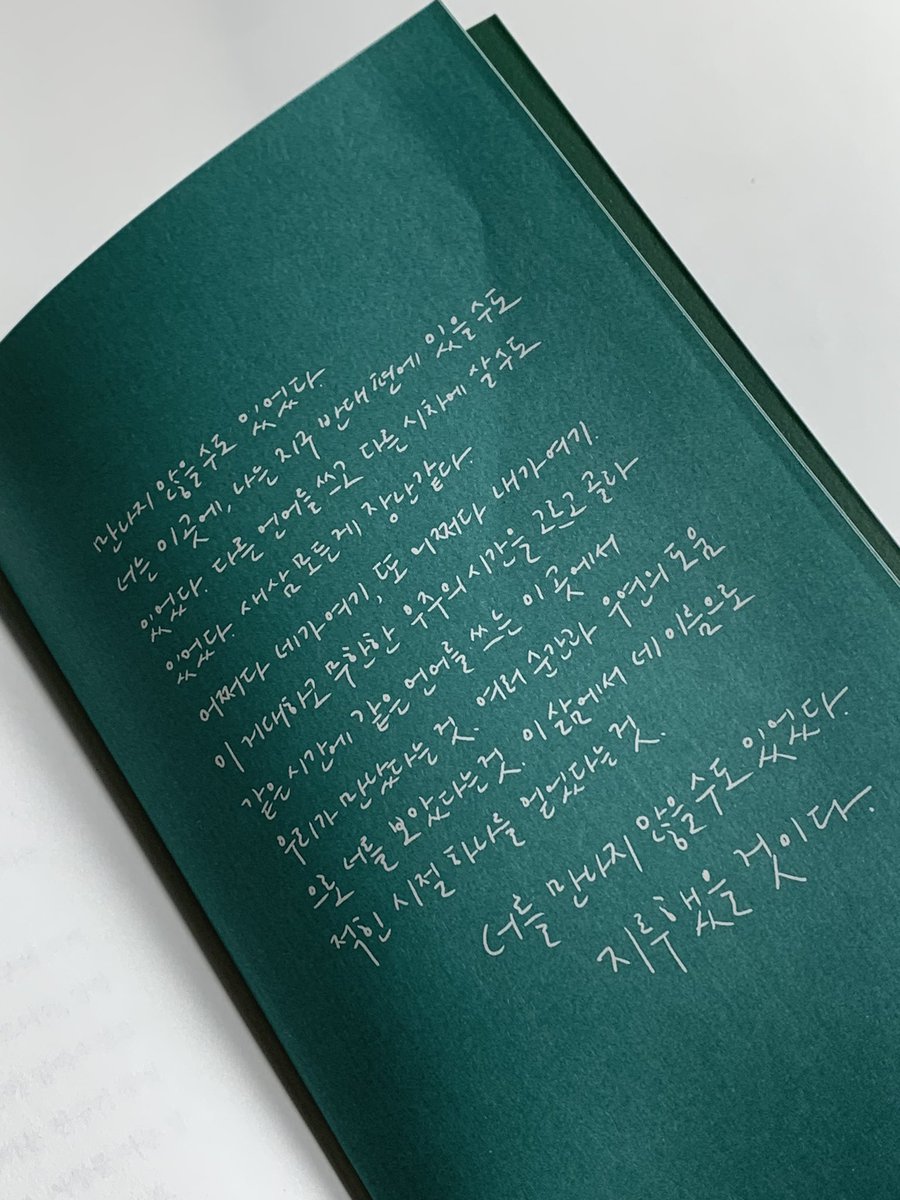 만나지 않을 수도 있었다.
너는 이곳에, 나는 지구 반대편에 있을 수도
있었다. 다른 언어를 쓰고 다른 시차에 살 수도
있었다. 새삼 모든 게 장난같다.
어쩌다 네가 여기, 또 어쩌다 내가 여기.
이 거대하고 무한한 우주의 시간을 고르고 골라
같은 시간에 같은 언어를 쓰는 이 곳에서
우리가 만났다는 것. 여러 순간과 우연의 도움
으로 너를 보았다는 것. 이 삶에서 네 이름으로
적힌 시절 하나를 얻었다는 것.
너를 만나지 않을 수도 있었다.
지루했을 것이다.